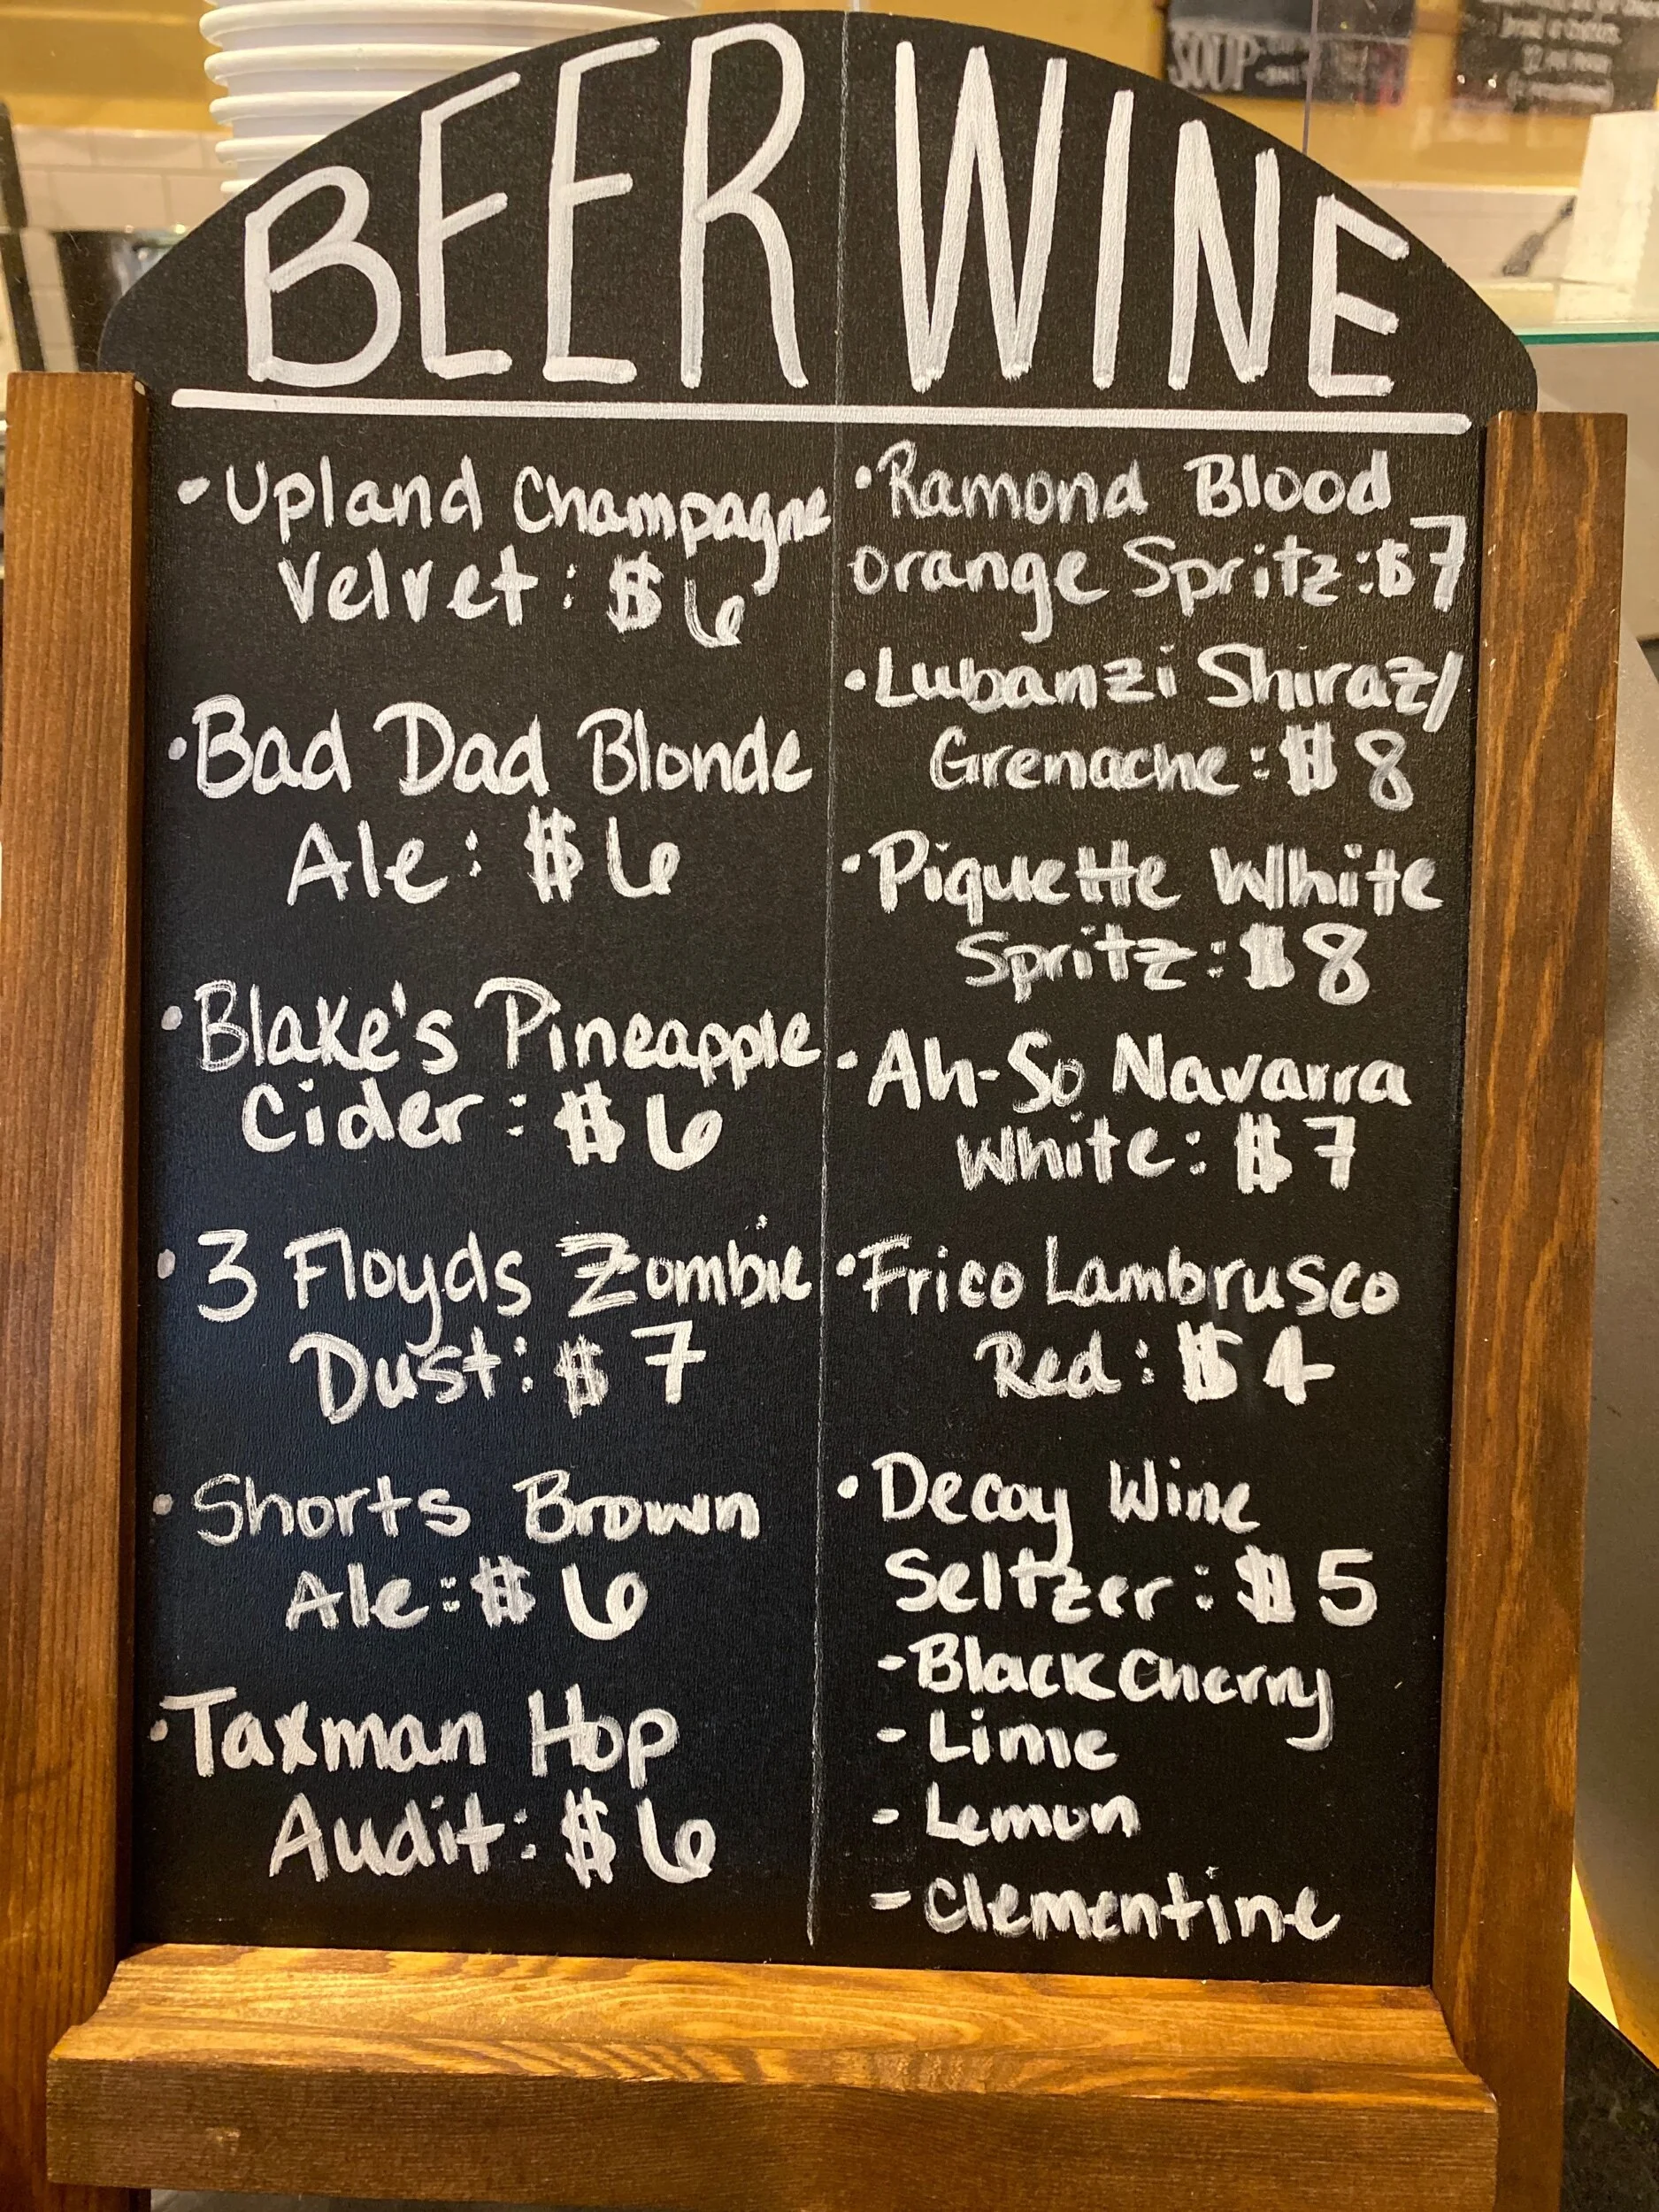 BEER WINE
•Upland Champagne
Velvet: $6
•Bad Dad Blonde
Ale: $6
•Blake's Pineapple
Cider: $6
•3 Floyds Zombie
Dust: $7
•Shorts Brown
Ale: $6
•Taxman Hop
Audit: $6
•Ramond Blood
orange Spritz: $7
•Lubanzi Shiraz/
Grenache: $8
•Piquette White
Spritz: $8
•Ah-So Navarra
White: $7
•Frico Lambrusco
Red: $4
•Decoy Wine
Seltzer: $5
-Black Cherry
- Lime
- Lemon
- Clementine
SOUP